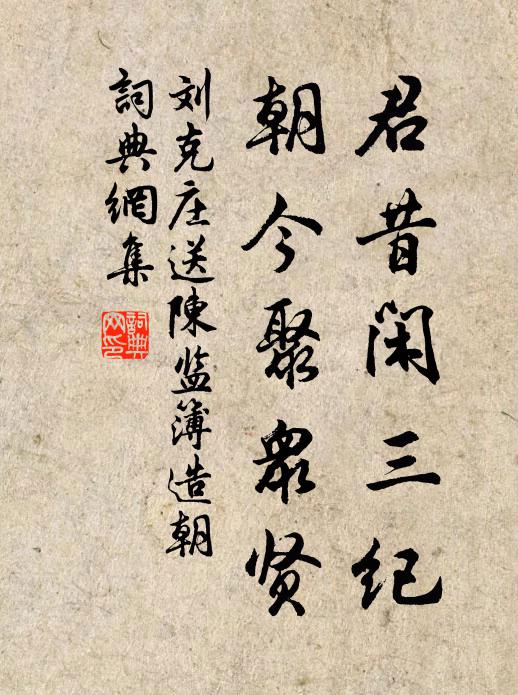 君昔闲三纪
朝今聚衆贤
刘克庄送陳监簿造朝
詞典網集
詞典
网印